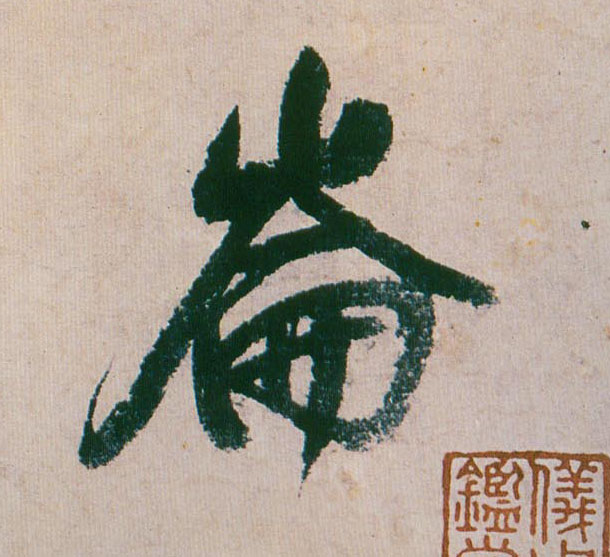 崙
儀
鑑